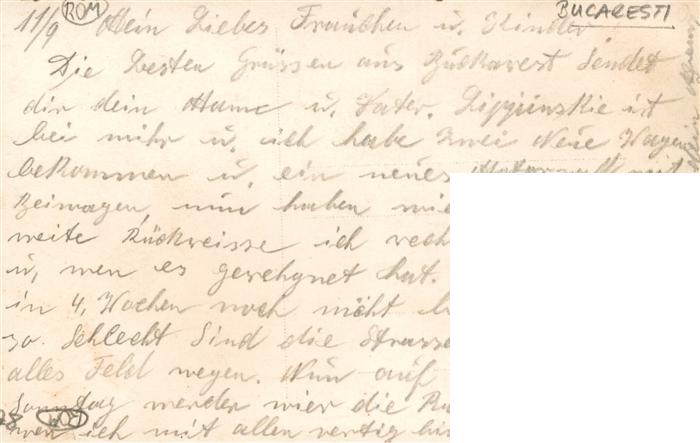 11/9 ROM Mein Liebes Frauchen u. Kinder! BUCARESTI
Die Besten Grüssen aus Bückarest Sendet
dir dein Mann u. Vater. Lipjinskie ist
bei mihr u. ich habe zwei Neue Wagen
bekommen u. ein neues
Beiwagen, nun haben
weite Rückreisse ich
u, wen es gerehgnet hat.
in 4, Wochen noch nicht
so. Schlecht Sind die Strasse
alles Feld wegen. Nun auf
Sonntag werden wier die
wen ich mit allen vertig bin
ROM